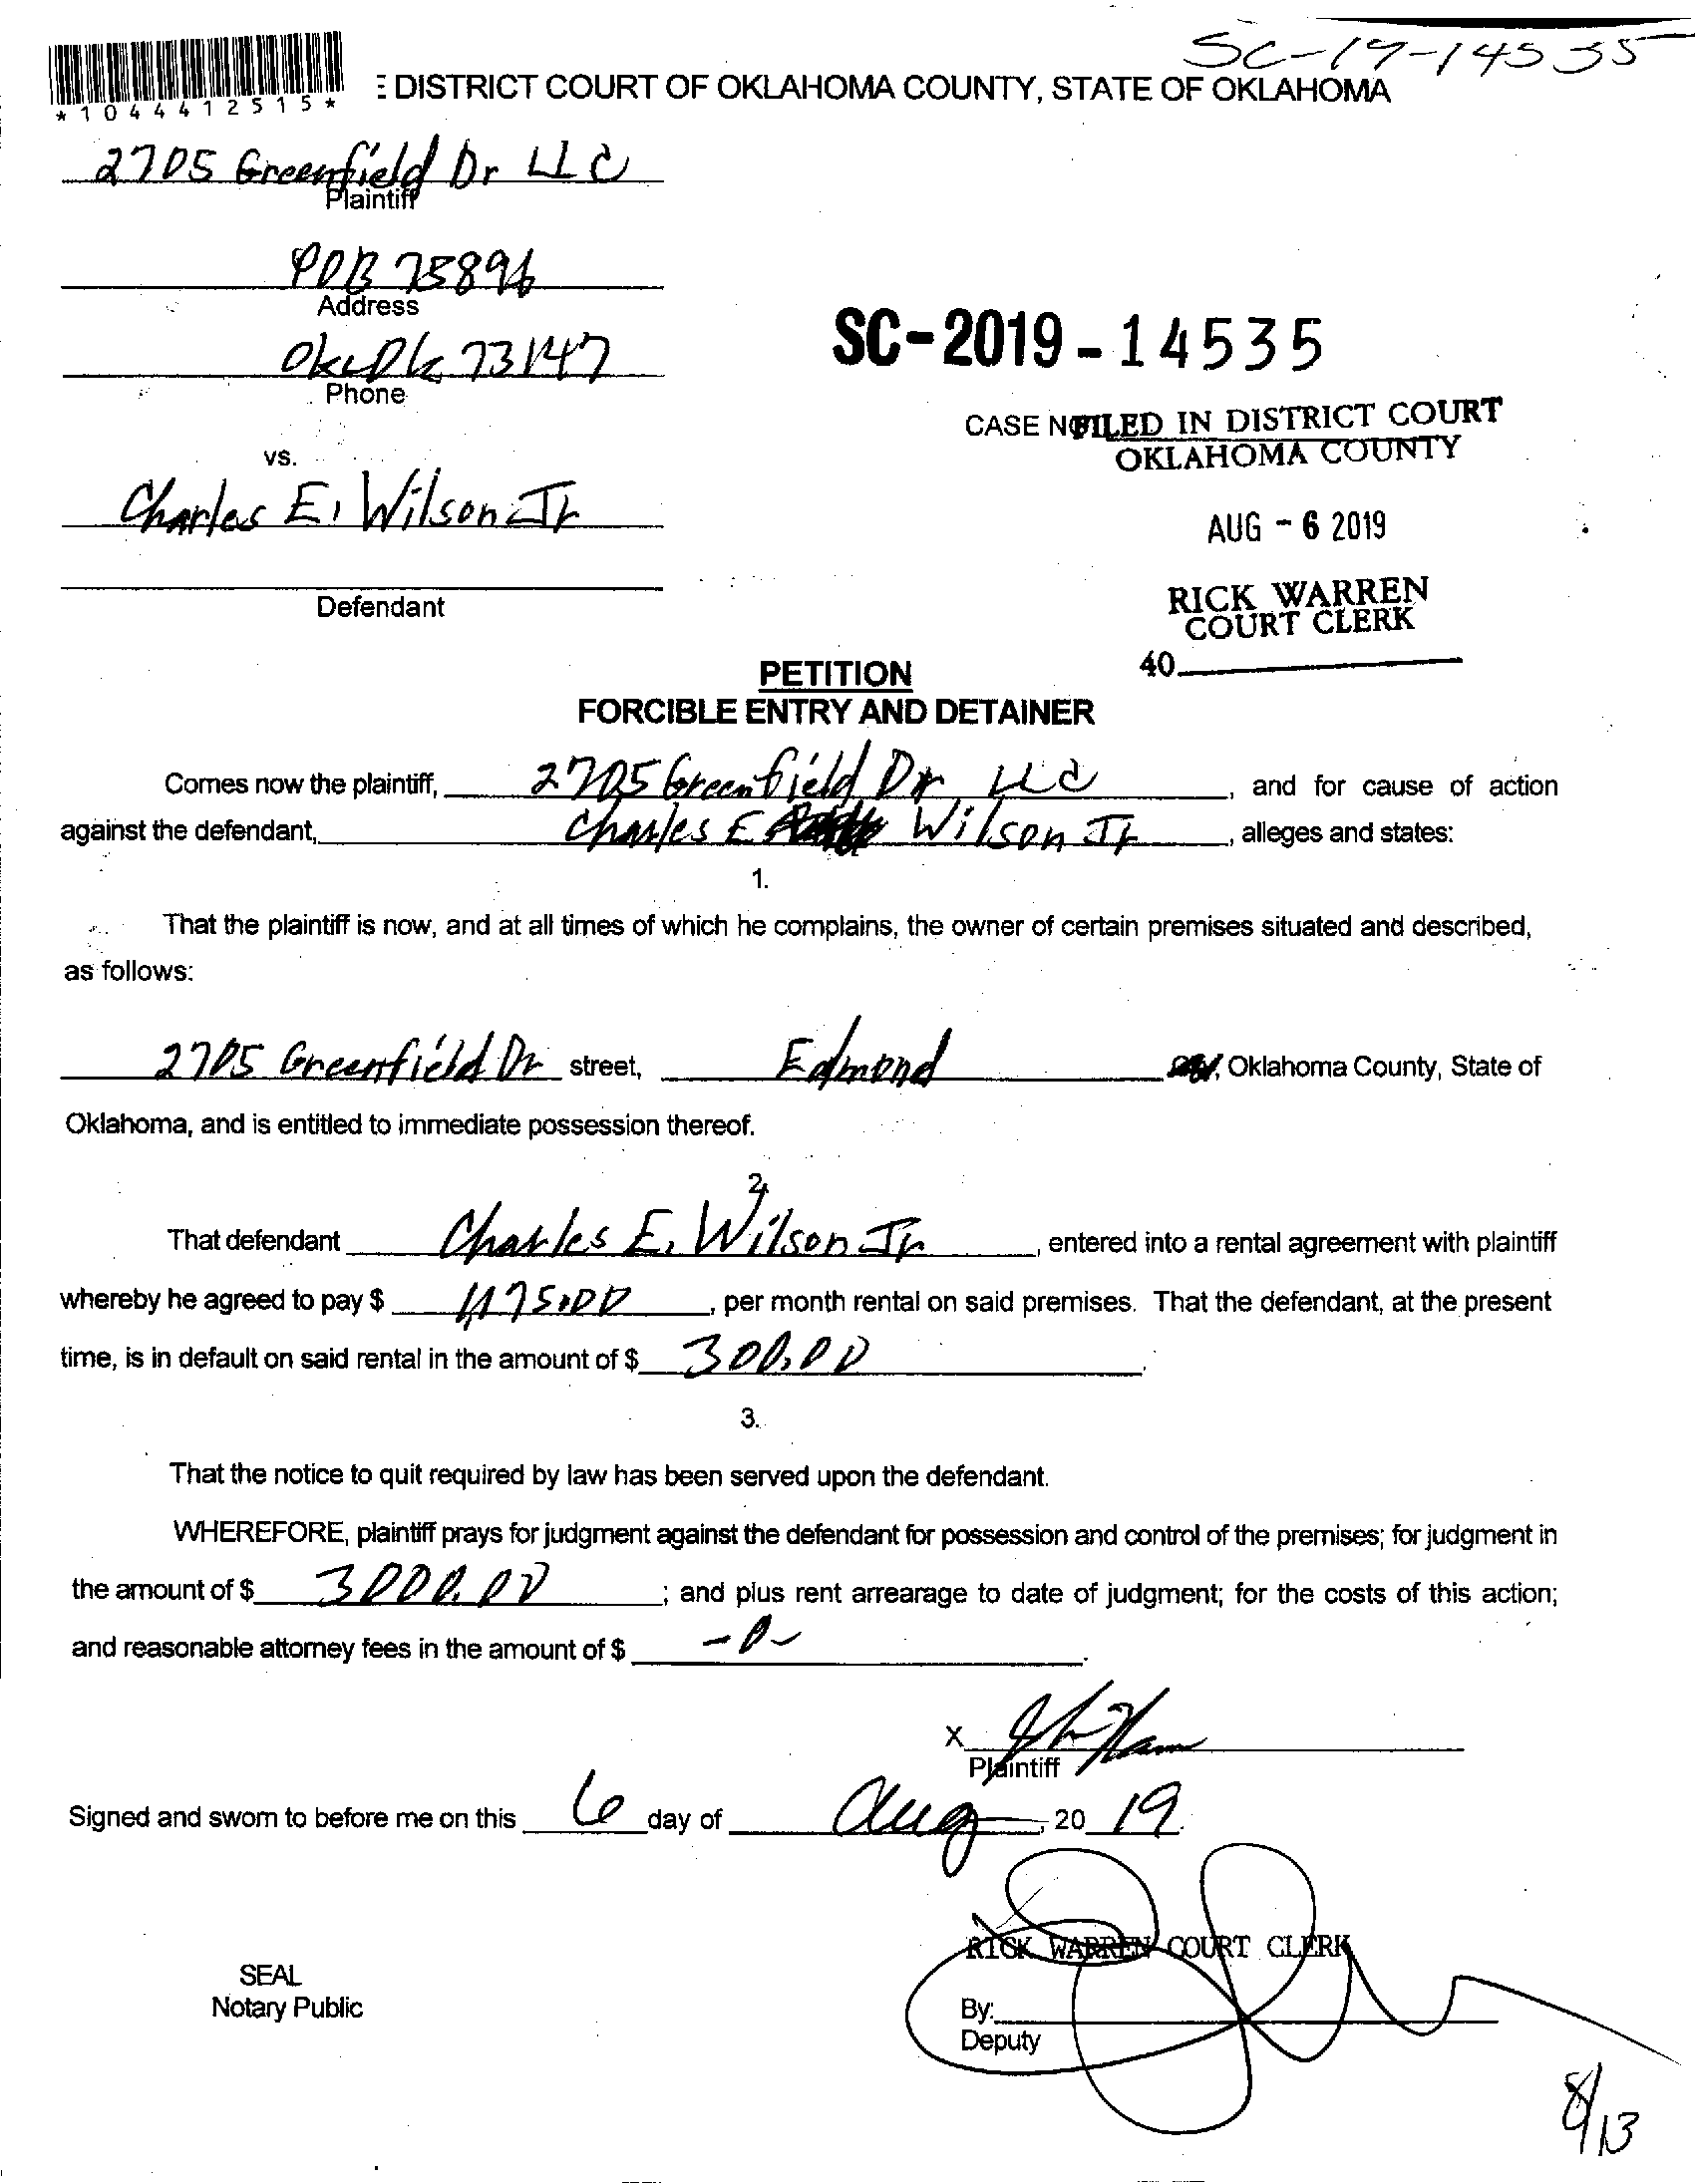 SC-19-14535
*1044412515*
E DISTRICT COURT OF OKLAHOMA COUNTY, STATE OF OKLAHOMA
2705 Greenfield Dr LLC
Plaintiff
POB 75896
Address
Okc Ok 73147
Phone
SC-2019-14535
CASE NO
FILED IN DISTRICT COURT
OKLAHOMA COUNTY
vs.
Charles E. Wilson Jr
AUG - 6 2019
Defendant
RICK WARREN
COURT CLERK
40
PETITION
FORCIBLE ENTRY AND DETAINER
Comes now the plaintiff, 2705 Greenfield Dr LLC, and for cause of action
against the defendant, Charles E Wilson Jr, alleges and states:
1.
That the plaintiff is now, and at all times of which he complains, the owner of certain premises situated and described,
as follows:
2705 Greenfield Dr street, Edmond, Oklahoma County, State of
Oklahoma, and is entitled to immediate possession thereof.
2.
That defendant Charles E. Wilson Jr, entered into a rental agreement with plaintiff
whereby he agreed to pay $ 1,175.00, per month rental on said premises. That the defendant, at the present
time, is in default on said rental in the amount of $ 300.00.
3.
That the notice to quit required by law has been served upon the defendant.
WHEREFORE, plaintiff prays for judgment against the defendant for possession and control of the premises; for judgment in
the amount of $ 3000.00; and plus rent arrearage to date of judgment; for the costs of this action;
and reasonable attorney fees in the amount of $ -0-.
X
Plaintiff
Signed and sworn to before me on this 6 day of Aug, 20 19.
RICK WARREN COURT CLERK
SEAL
Notary Public
By:
Deputy
8/13